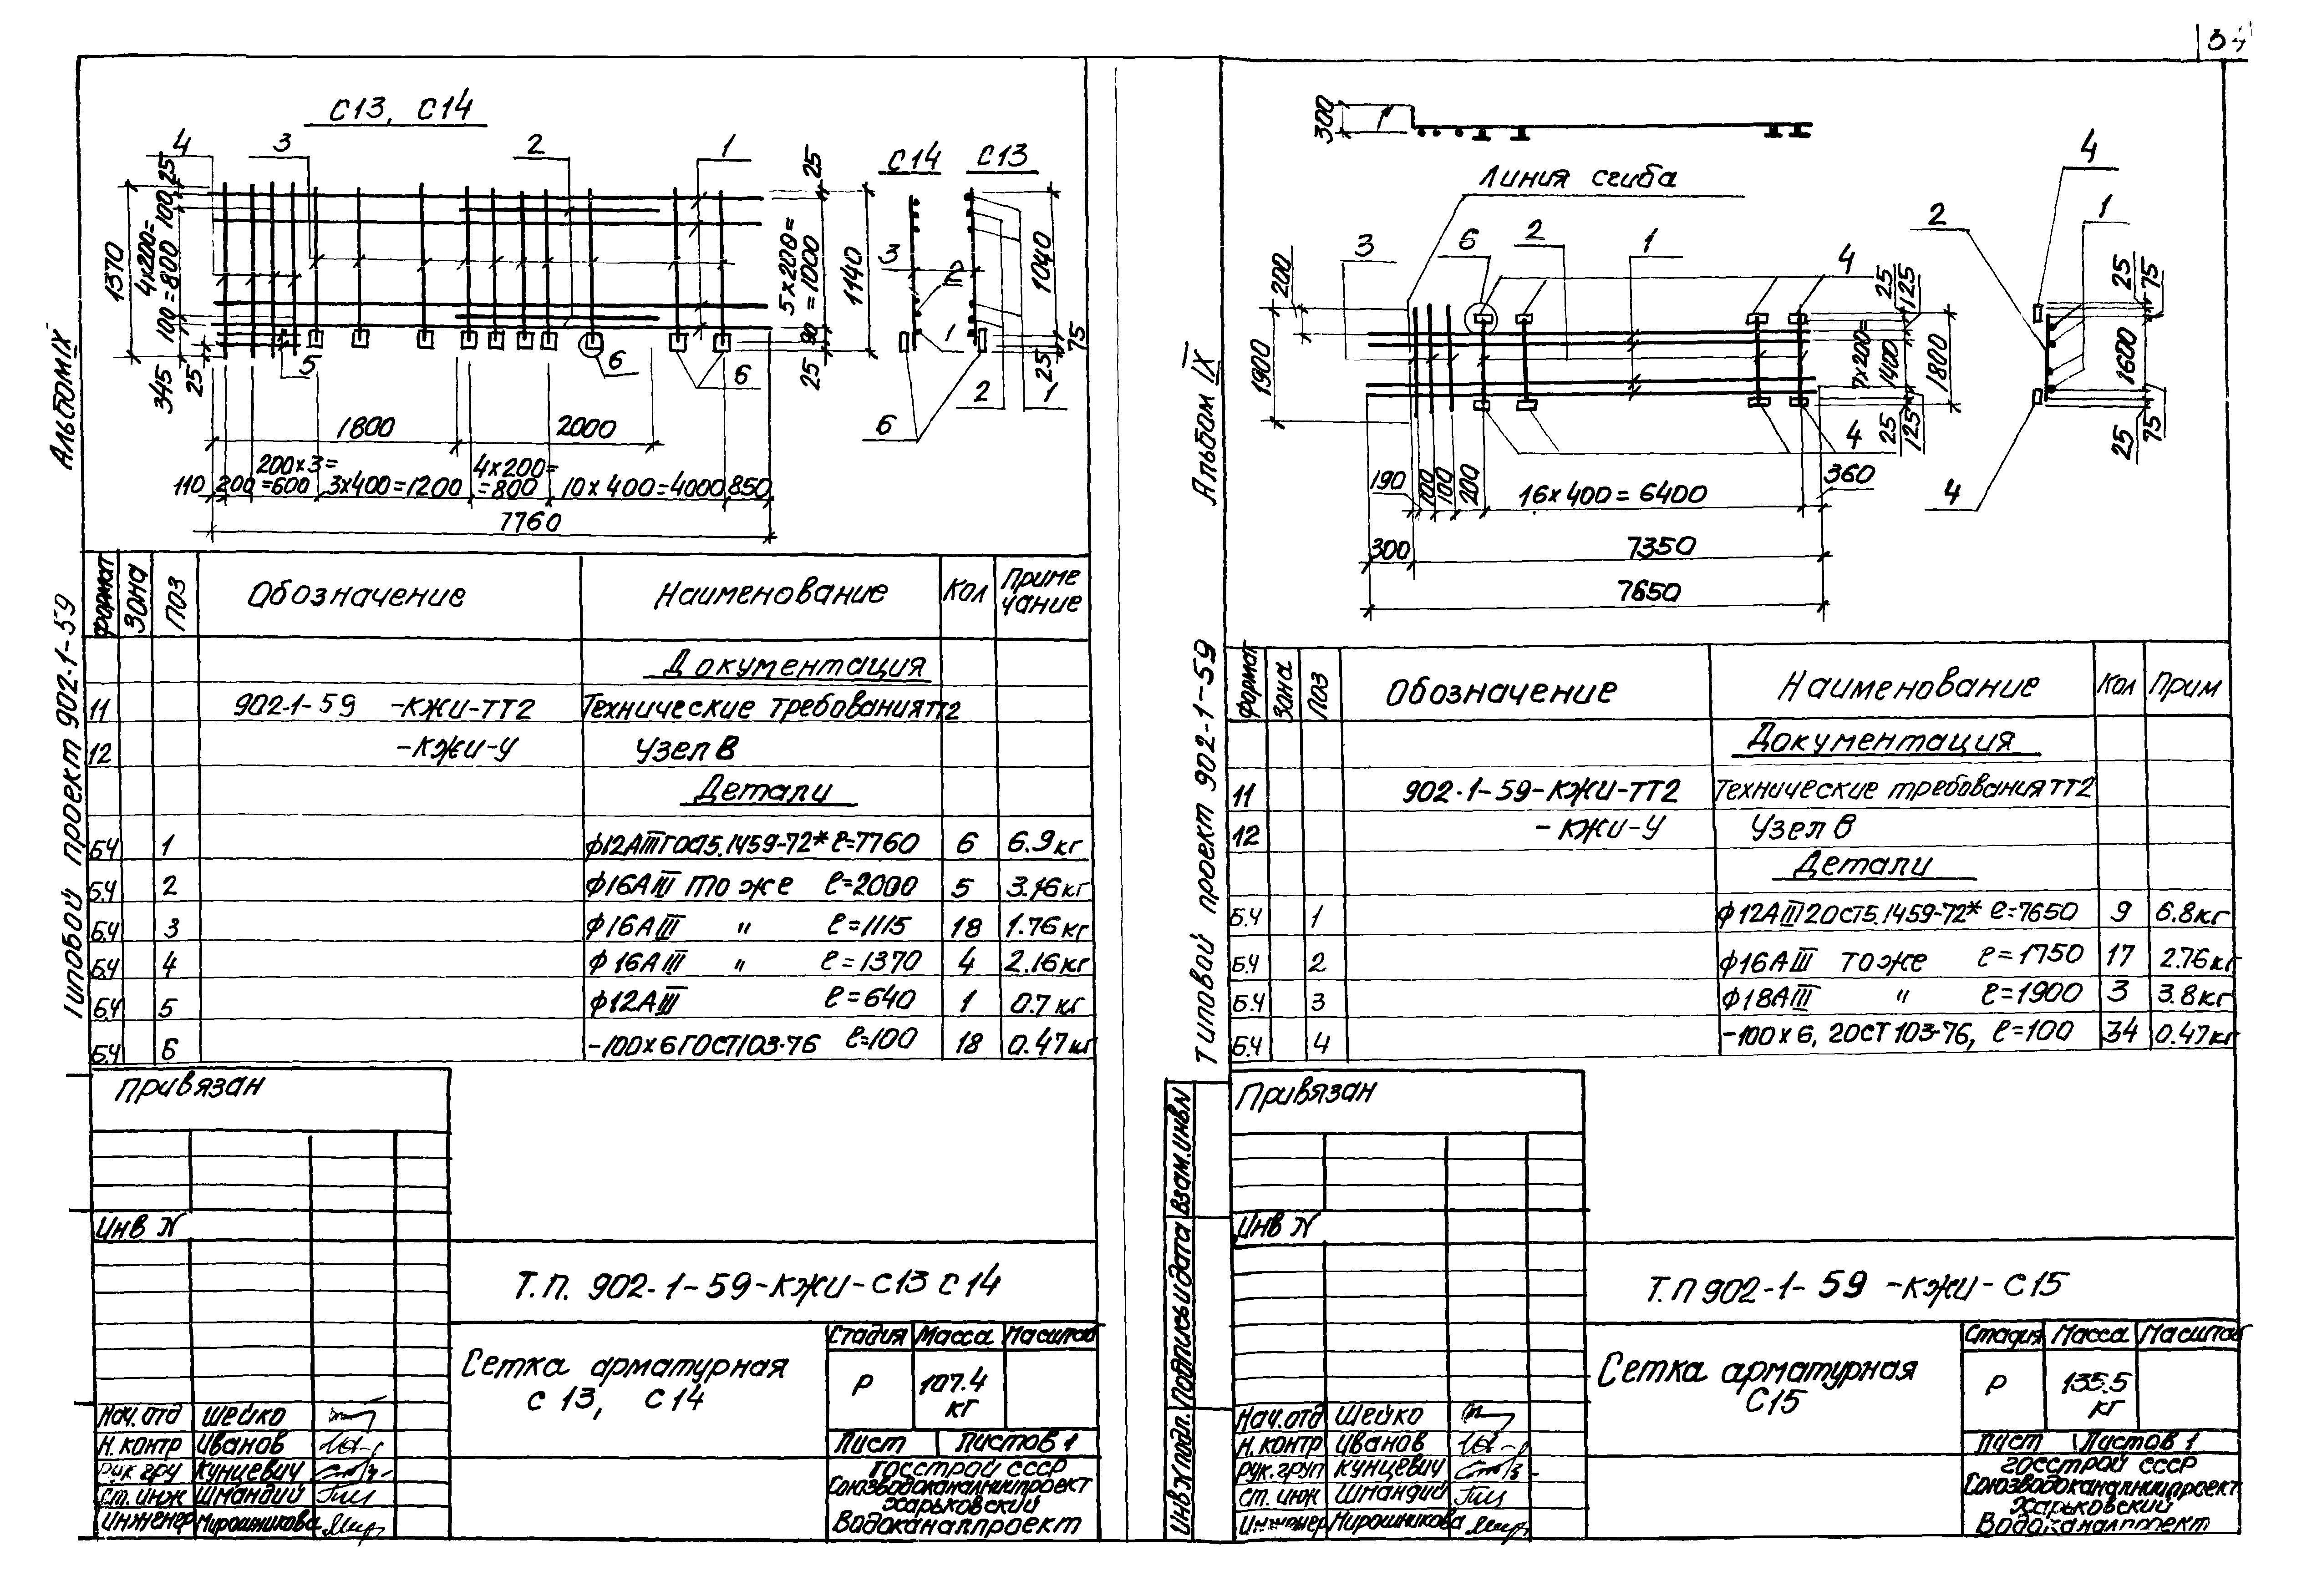 34
Альбом IX
Типовой проект 902-1-59
С13, С14
4
3
2
1
С14
С13
25
100
4x200=
=800
100
1370
345
25
25
5x200=
=1000
90
25
1140
1040
25
75
3
2
1
2
1
6
5
6
6
1800
2000
110
200
200x3=
=600
3x400=1200
4x200=
=800
10x400=4000
850
7760
Формат
Зона
Поз
Обозначение
Наименование
Кол
Приме
чание
Документация
11 902-1-59 -КЖИ-ТТ2 Технические требования ТТ2
12 -КЖИ-У Узел В
Детали
БЧ 1 ϕ12АIII ГОСТ5.1459-72* ℓ=7760 6 6.9кг
БЧ 2 ϕ16АIII то же ℓ=2000 5 3.16кг
БЧ 3 ϕ16АIII " ℓ=1115 18 1.76кг
БЧ 4 ϕ16АIII " ℓ=1370 4 2.16кг
БЧ 5 ϕ12АIII ℓ=640 1 0.7кг
БЧ 6 -100x6 ГОСТ103-76 ℓ=100 18 0.47кг
Привязан
Инв N
Т.П. 902-1-59-КЖИ-С13 С14
Сетка арматурная
С13, С14
Стадия Масса Масштаб
Р 107.4
кг
Лист Листов 1
Госстрой СССР
Союзводоканалниипроект
Харьковский
Водоканалпроект
Нач.отд Шейко
Н.контр Иванов
Рук гру Кунцевич
Ст. инж Шмандий
Инженер Мирошникова
Альбом IX
Типовой проект 902-1-59
300
Линия сгиба
3
6
2
1
4
200
1900
25
125
7x200=
1400
1800
25
125
4
190
100
100
200
16x400=6400
360
300
7350
7650
4
2
1
25
75
1600
25
75
4
Формат
Зона
Поз
Обозначение
Наименование
Кол
Прим
Документация
11 902-1-59-КЖИ-ТТ2 Технические требования ТТ2
12 -КЖИ-У Узел В
Детали
БЧ 1 ϕ12АIII ГОСТ5.1459-72* ℓ=7650 9 6.8кг
БЧ 2 ϕ16АIII то же ℓ=1750 17 2.76кг
БЧ 3 ϕ18АIII " ℓ=1900 3 3.8кг
БЧ 4 -100x6, ГОСТ 103-76, ℓ=100 34 0.47кг
Привязан
Инв N
Взам.инвN
Подпись и дата
Инв N подл.
Т.П 902-1-59 -КЖИ-С15
Сетка арматурная
С15
Стадия Масса Масштаб
Р 135.5
кг
Лист Листов 1
Госстрой СССР
Союзводоканалниипроект
Харьковский
Водоканалпроект
Нач.отд Шейко
Н.контр Иванов
Рук.груп Кунцевич
Ст. инж Шмандий
Инженер Мирошникова